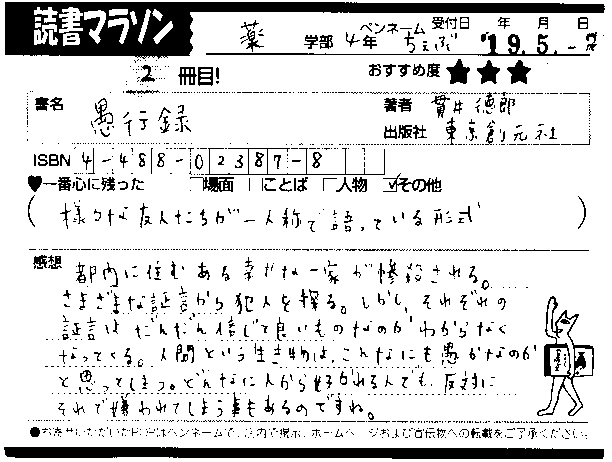 読書マラソン
薬 学部 4年 ペンネーム ちぇぶ 受付日 年 月 日 '19.5.-2
2 冊目! おすすめ度 ★★★
書名 愚行録
著者 貫井徳郎
出版社 東京創元社
ISBN 4-488-02387-8
♥一番心に残った □場面 □ことば □人物 ☑その他
(様々な友人たちが一人称で語っている形式)
感想 都内に住むある幸せな一家が惨殺される。
さまざまな証言から犯人を探る。しかし、それぞれの
証言はだんだん信じて良いものなのかわからなく
なってくる。人間という生き物は、こんなにも愚かなのか
と思ってしまう。どんなに人から好かれる人でも、反対に
それで嫌われてしまう事もあるのですね。
●お寄せいただいたPOPはペンネームで、店内で掲示、ホームページおよび宣伝物への転載をご了承ください。